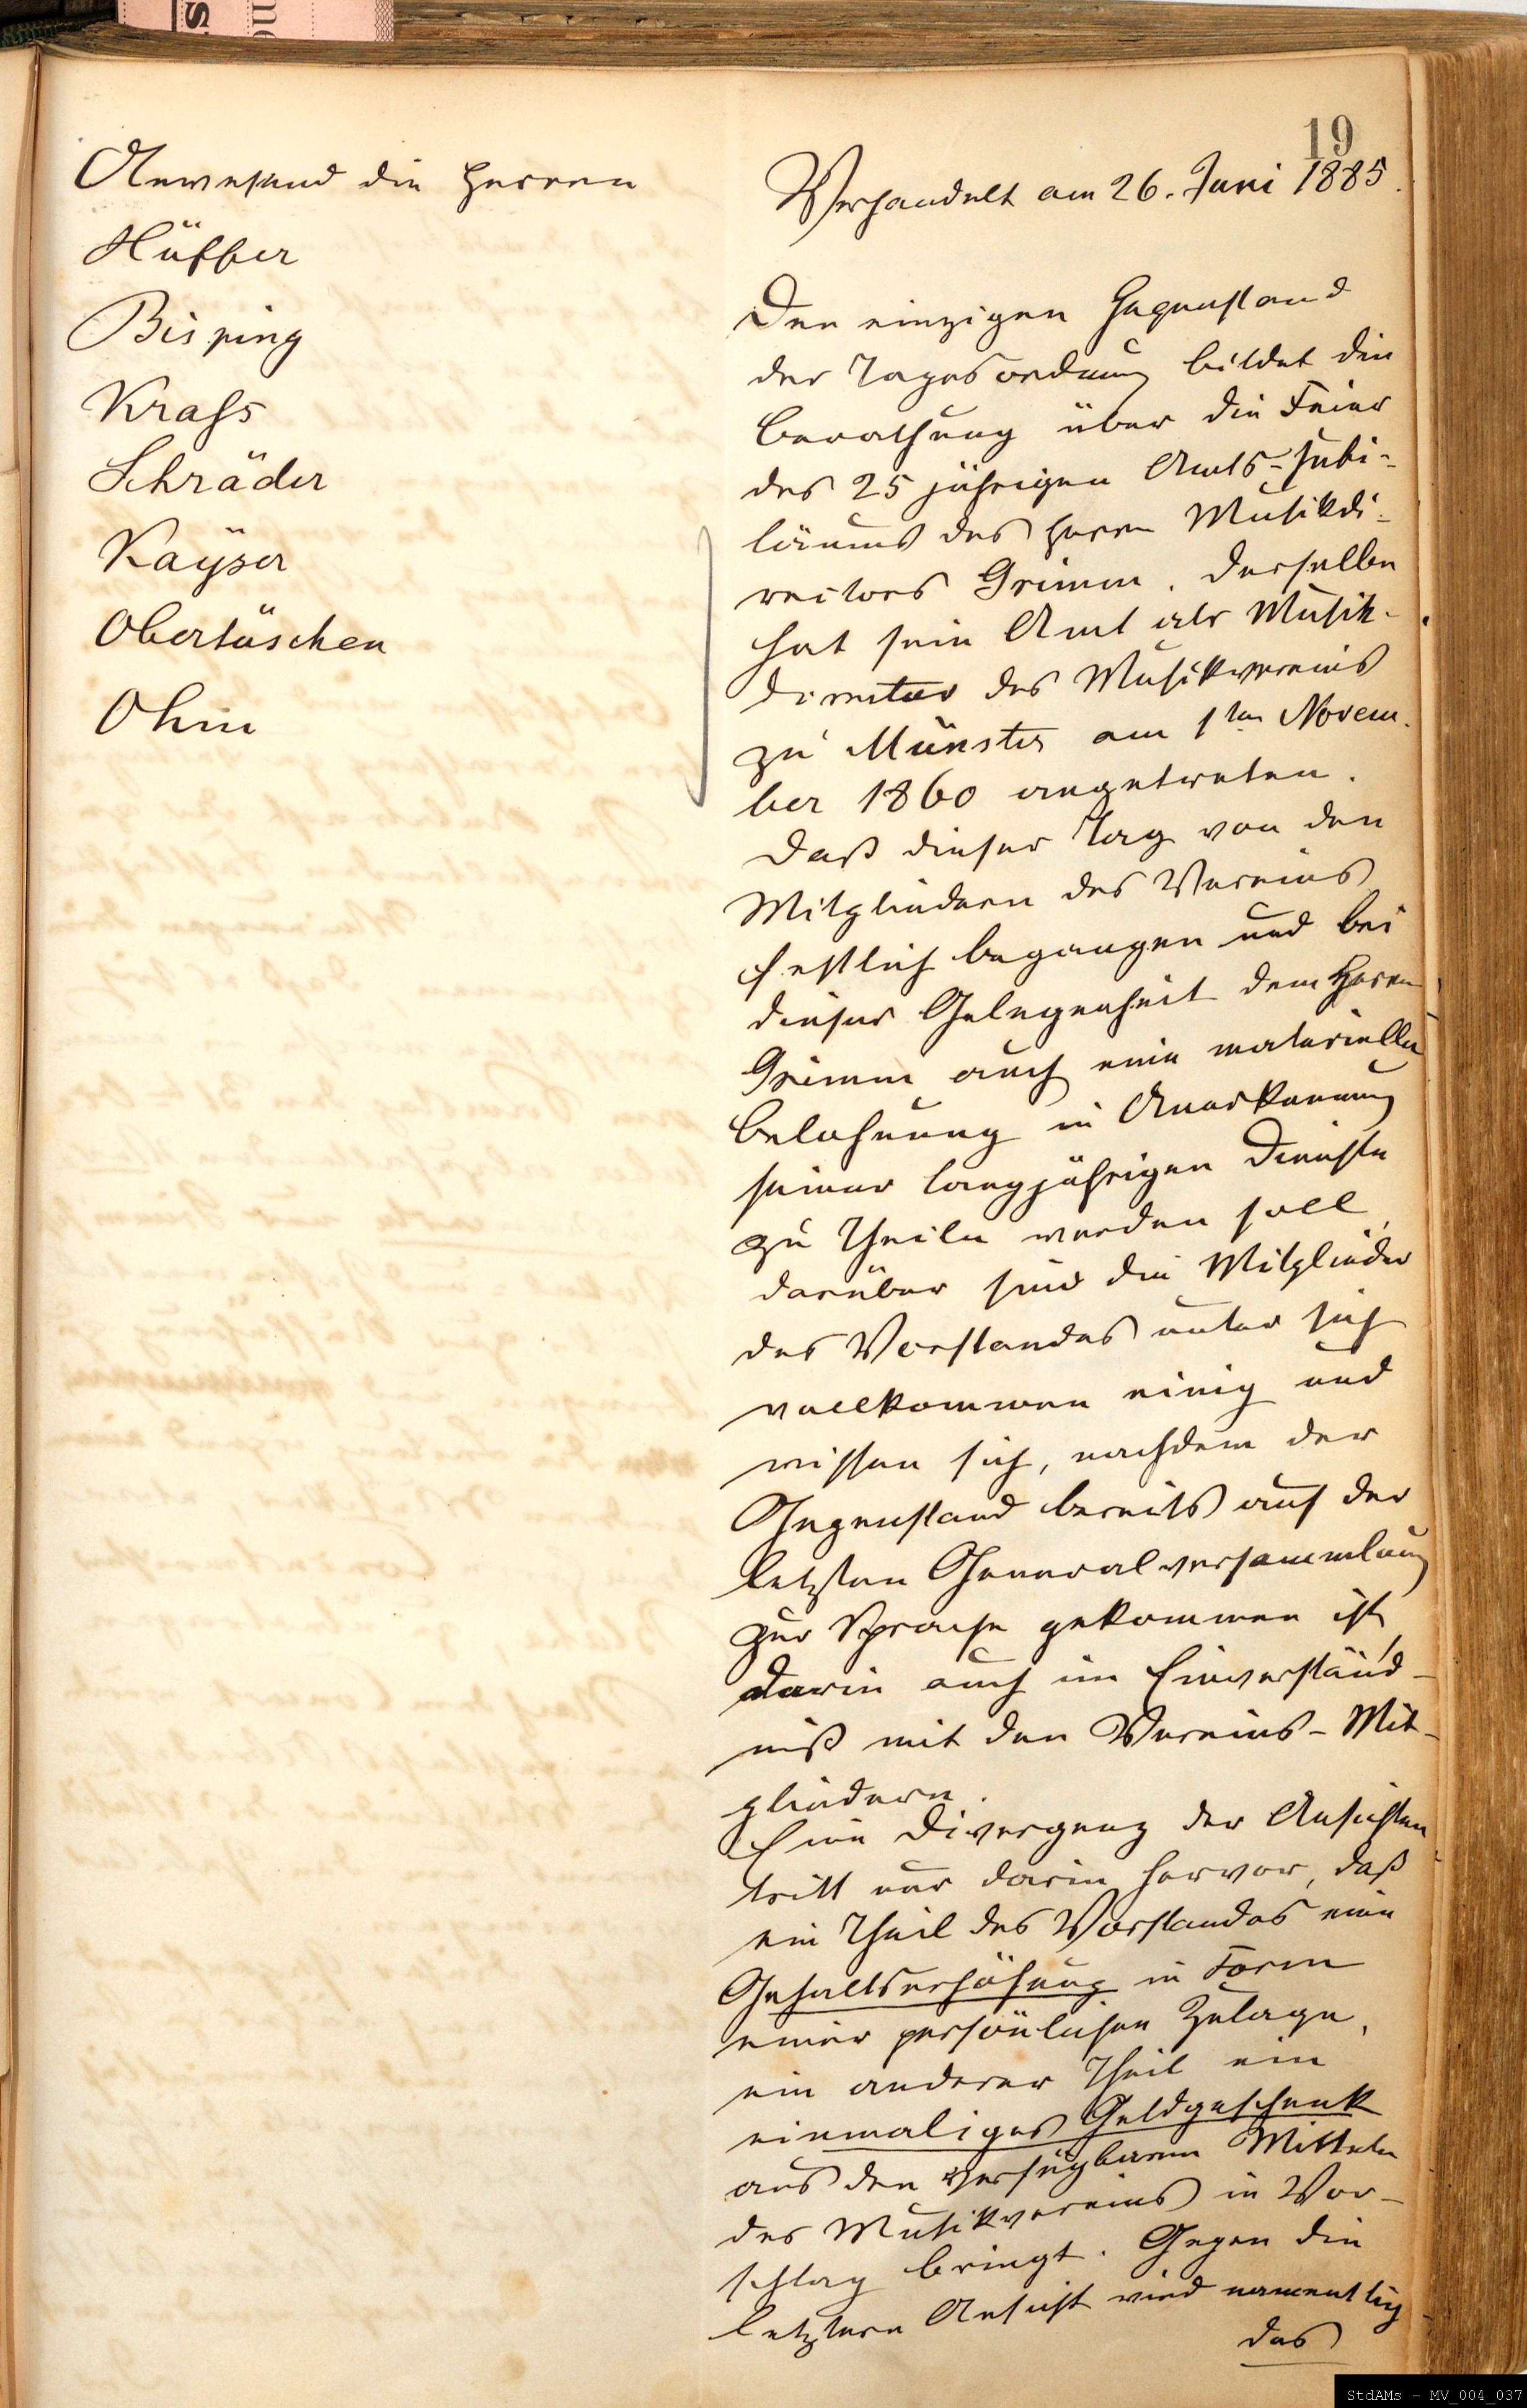 19
Anwesend die Herren
Hüffer
Bisping
Krass
Schräder
Kayser
Obertüschen
Ohm
Verhandelt am 26. Juni 1885.
Den einzigen Gegenstand
der Tagesordnung bildet die
Berathung über die Feier
des 25 jährigen Amts-Jubi-
läums des Herrn Musikdi-
rectors Grimm. Derselbe
hat sein Amt als Musik-
director des Musikvereins
zu Münster am 1ten Novem-
ber 1860 angetreten.
Daß dieser Tag von den
Mitgliedern des Vereins
festlich begangen und bei
dieser Gelegenheit dem Herrn
Grimm auch eine materielle
Belohnung in Anerkennung
seiner langjährigen Dienste
zu Theile werden soll,
darüber sind die Mitglieder
des Vorstandes unter sich
vollkommen einig und
wissen sich, nachdem der
Gegenstand bereits auf der
letzten Generalversammlung
zur Sprache gekommen ist,
darin auch im Einverständ-
niß mit den Vereins-Mit-
gliedern.
Eine Divergenz der Ansichten
tritt nur darin hervor, daß
ein Theil des Vorstandes eine
Gehaltserhöhung in Form
einer persönlichen Zulage,
ein anderer Theil ein
einmaliges Geldgeschenk
aus den verfügbaren Mitteln
des Musikvereins in Vor-
schlag bringt. Gegen die
letztere Ansicht wird namentlich
das
StdAMs - MV_004_037